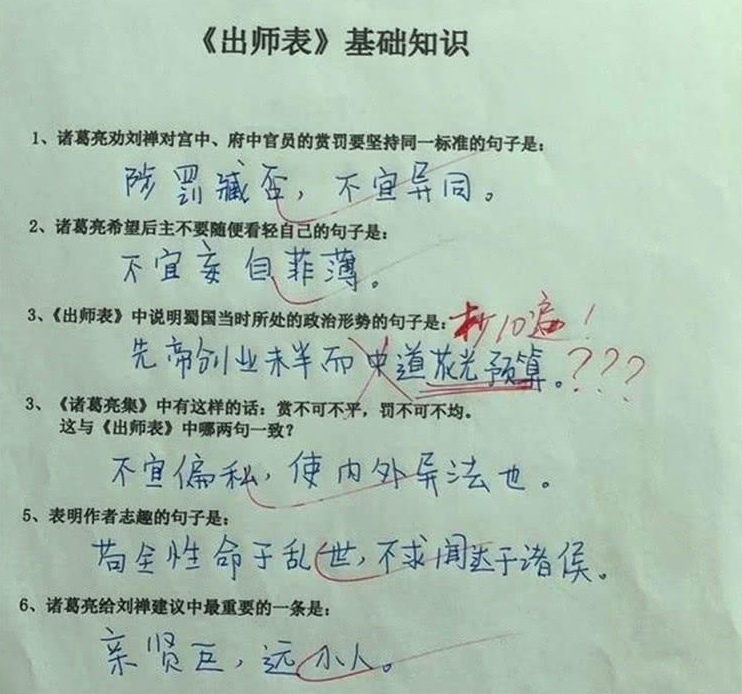 《出师表》基础知识
1、诸葛亮劝刘禅对宫中、府中官员的赏罚要坚持同一标准的句子是：
陟罚臧否，不宜异同。
2、诸葛亮希望后主不要随便看轻自己的句子是：
不宜妄自菲薄。
3、《出师表》中说明蜀国当时所处的政治形势的句子是：
抄10遍！
先帝创业未半而中道花光预算。???
3、《诸葛亮集》中有这样的话：赏不可不平，罚不可不均。
这与《出师表》中哪两句一致？
不宜偏私，使内外异法也。
5、表明作者志趣的句子是：
苟全性命于乱世，不求闻达于诸侯。
6、诸葛亮给刘禅建议中最重要的一条是：
亲贤臣，远小人。